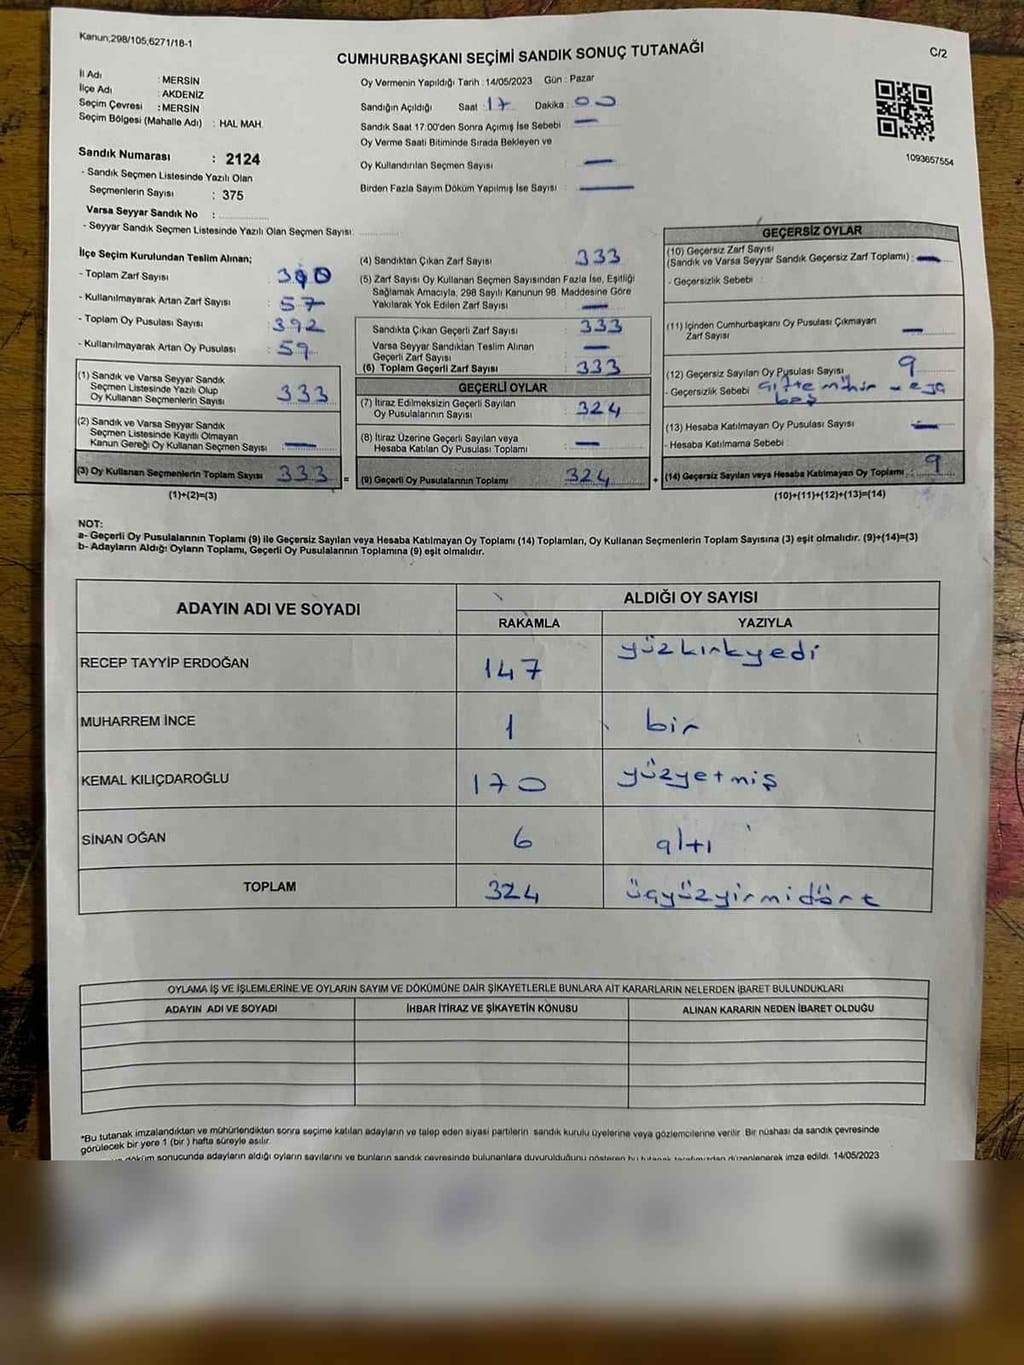 Kanun;298/105,6271/18-1
C/2
CUMHURBAŞKANI SEÇİMİ SANDIK SONUÇ TUTANAĞI
İl Adı : MERSİN
İlçe Adı : AKDENİZ
Seçim Çevresi : MERSİN
Seçim Bölgesi (Mahalle Adı) : HAL MAH.
Sandık Numarası : 2124
- Sandık Seçmen Listesinde Yazılı Olan
Seçmenlerin Sayısı : 375
Varsa Seyyar Sandık No :
- Seyyar Sandık Seçmen Listesinde Yazılı Olan Seçmen Sayısı:
Oy Vermenin Yapıldığı Tarih : 14/05/2023 Gün : Pazar
Sandığın Açıldığı Saat : 17 Dakika : 00
Sandık Saat 17:00'den Sonra Açımış İse Sebebi : —
Oy Verme Saati Bitiminde Sırada Bekleyen ve
Oy Kullandırılan Seçmen Sayısı : —
Birden Fazla Sayım Döküm Yapılmış İse Sayısı : —
1093657554
İlçe Seçim Kurulundan Teslim Alınan;
- Toplam Zarf Sayısı : 390
- Kullanılmayarak Artan Zarf Sayısı : 57
- Toplam Oy Pusulası Sayısı : 392
- Kullanılmayarak Artan Oy Pusulası : 59
(1) Sandık ve Varsa Seyyar Sandık
Seçmen Listesinde Yazılı Olup
Oy Kullanan Seçmenlerin Sayısı : 333
(2) Sandık ve Varsa Seyyar Sandık
Seçmen Listesinde Kayıtlı Olmayan
Kanun Gereği Oy Kullanan Seçmen Sayısı : —
(3) Oy Kullanan Seçmenlerin Toplam Sayısı : 333 =
(1)+(2)=(3)
(4) Sandıktan Çıkan Zarf Sayısı : 333
(5) Zarf Sayısı Oy Kullanan Seçmen Sayısından Fazla İse, Eşitliği
Sağlamak Amacıyla; 298 Sayılı Kanunun 98. Maddesine Göre
Yakılarak Yok Edilen Zarf Sayısı : —
Sandıkta Çıkan Geçerli Zarf Sayısı : 333
Varsa Seyyar Sandıktan Teslim Alınan
Geçerli Zarf Sayısı : —
(6) Toplam Geçerli Zarf Sayısı : 333
GEÇERLİ OYLAR
(7) İtiraz Edilmeksizin Geçerli Sayılan
Oy Pusulalarının Sayısı : 324
(8) İtiraz Üzerine Geçerli Sayılan veya
Hesaba Katılan Oy Pusulası Toplamı : —
(9) Geçerli Oy Pusulalarının Toplamı : 324 +
GEÇERSİZ OYLAR
(10) Geçersiz Zarf Sayısı
(Sandık ve Varsa Seyyar Sandık Geçersiz Zarf Toplamı) : —
- Geçersizlik Sebebi :
(11) İçinden Cumhurbaşkanı Oy Pusulası Çıkmayan
Zarf Sayısı : —
(12) Geçersiz Sayılan Oy Pusulası Sayısı : 9
- Geçersizlik Sebebi : çifte mühür veya
boş
(13) Hesaba Katılmayan Oy Pusulası Sayısı : —
- Hesaba Katılmama Sebebi :
(14) Geçersiz Sayılan veya Hesaba Katılmayan Oy Toplamı : 9
(10)+(11)+(12)+(13)=(14)
NOT:
a- Geçerli Oy Pusulalarının Toplamı (9) ile Geçersiz Sayılan veya Hesaba Katılmayan Oy Toplamı (14) Toplamları, Oy Kullanan Seçmenlerin Toplam Sayısına (3) eşit olmalıdır. (9)+(14)=(3)
b- Adayların Aldığı Oyların Toplamı, Geçerli Oy Pusulalarının Toplamına (9) eşit olmalıdır.
ADAYIN ADI VE SOYADI ALDIĞI OY SAYISI
RAKAMLA YAZIYLA
RECEP TAYYİP ERDOĞAN 147 yüzkırkyedi
MUHARREM İNCE 1 bir
KEMAL KILIÇDAROĞLU 170 yüzyetmiş
SİNAN OĞAN 6 altı
TOPLAM 324 üçyüzyirmidört
OYLAMA İŞ VE İŞLEMLERİNE VE OYLARIN SAYIM VE DÖKÜMÜNE DAİR ŞİKAYETLERLE BUNLARA AİT KARARLARIN NELERDEN İBARET BULUNDUKLARI
ADAYIN ADI VE SOYADI İHBAR İTİRAZ VE ŞİKAYETİN KONUSU ALINAN KARARIN NEDEN İBARET OLDUĞU
*Bu tutanak imzalandıktan ve mühürlendikten sonra seçime katılan adayların ve talep eden siyasi partilerin sandık kurulu üyelerine veya gözlemcilerine verilir. Bir nüshası da sandık çevresinde
görülecek bir yere 1 (bir) hafta süreyle asılır.
döküm sonucunda adayların aldığı oyların sayılarını ve bunların sandık çevresinde bulunanlara duyurulduğunu gösteren bu tutanak tarafımızdan düzenlenerek imza edildi. 14/05/2023